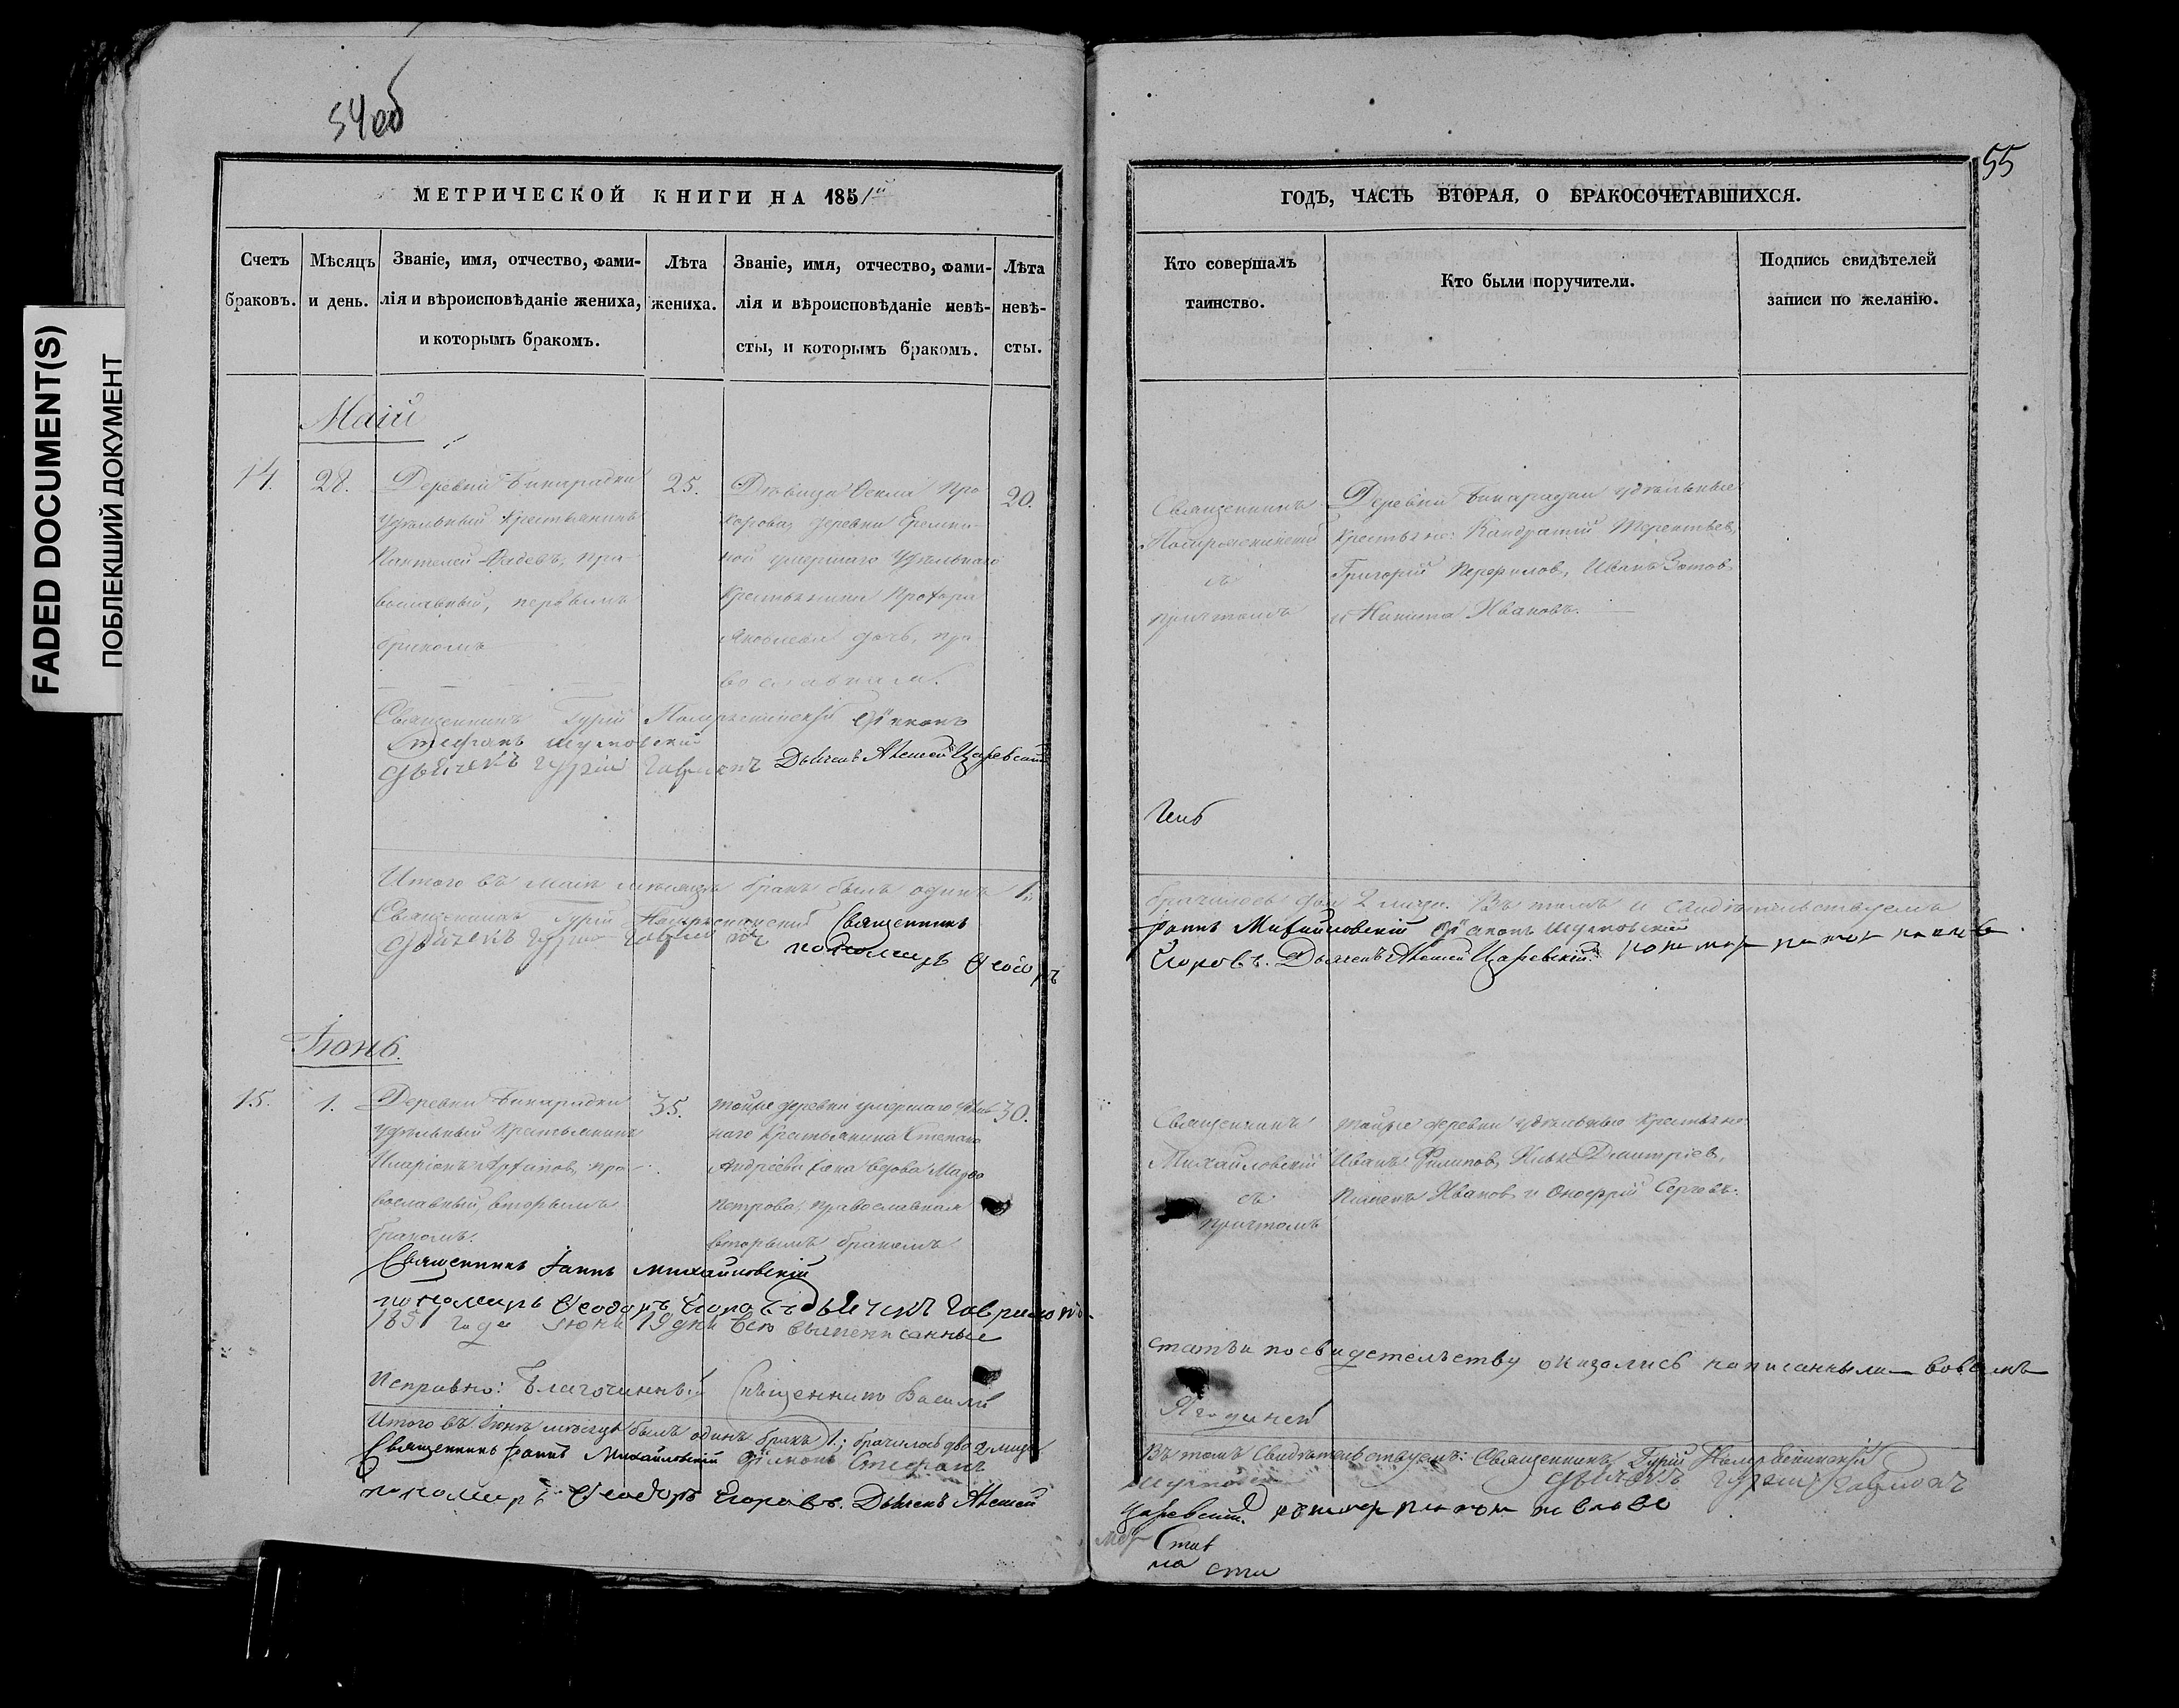 FADED DOCUMENT(S)
ПОБЛЕКШИЙ ДОКУМЕНТ
54об
МЕТРИЧЕСКОЙ КНИГИ НА 1851й
Счетъ браковъ.
Мѣсяцъ и день.
Званіе, имя, отчество, фами-
лія и вѣроисповѣданіе жениха,
и которымъ бракомъ.
Лѣта
жениха.
Званіе, имя, отчество, фами-
лія и вѣроисповѣданіе невѣ-
сты, и которымъ бракомъ.
Лѣта
невѣ-
сты.
Маій
14.
28.
Деревни Бинарадки
удѣльный крестьянинъ
Пантелей Фадевъ, пра-
вославный, первымъ
бракомъ
25.
Дѣвица Текла Про
хорова, деревни Еремки-
ной умершаго удѣльнаго
крестьянина Прохора
Яковлева дочь, пра
вославная.
20.
Священникъ Гурій діаконъ
Стефанъ Шумовскій
дьячекъ Гурій Дьячекъ Алексей Царевскій
Итого въ маіи месяцѣ бракъ былъ одинъ 1.
Священникъ Гурій Священникъ
дьячекъ Гурій пономарь Ѳеодоръ
Іюнь.
15.
1.
Деревни Бинарадки
удѣльный крестьянинъ
Иларіонъ Архиповъ, пра-
вославный, вторымъ
бракомъ.
35.
тойже деревни умершаго удѣль
наго крестьянина Степана
Андреева жена вдова Марѳа
Петрова, православная
вторымъ бракомъ.
30.
Священникъ Іаннъ Михайловскій
пономарь Ѳеодоръ Егоровъ дьячекъ
1851 года Іюня 19 дня вышеписанные
Исправно: Благочинный Священникъ Василій
Итого въ Іюнѣ месяцѣ былъ одинъ бракъ 1.; брачилось два 2 лица.
Священникъ Іаннъ Михайловскій діаконъ Стефанъ
пономарь Ѳеодоръ Егоровъ. Дьячекъ Алексей
55
ГОДЪ, ЧАСТЬ ВТОРАЯ, О БРАКОСОЧЕТАВШИХСЯ.
Кто совершалъ
таинство.
Кто были поручители.
Подпись свидѣтелей
записи по желанію.
Священникъ
съ
причтомъ
Деревни Бинарадки удѣльные
крестьяне: Кондратій Терентьев,
Григорій Перфилов, Иванъ Зотов
и Никита Ивановъ.
брачилось два 2 лица. Въ томъ и свидѣтельствуемъ
Іаннъ Михайловскій діаконъ Шумовскій
Егоровъ. Дьячекъ Алексей Царевскій
Священникъ
Михайловскій
съ
причтомъ
тойже деревни удѣльные крестьяне
Иванъ Филипов, Дмитріев,
Пименъ Иванов и Онофрій Сергѣев.
статьи по свидетельству оказались написанными
Ягодинскій
Въ томъ свидѣтельствуемъ: Священникъ Гурій
дьячекъ Гурій
Царевскій.